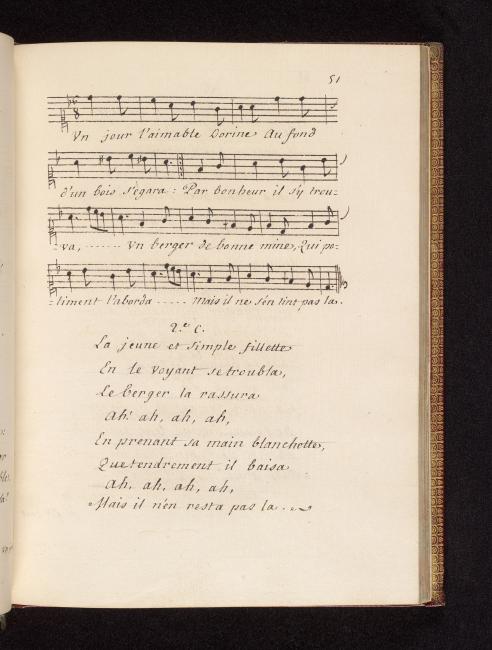 51
Un jour l'aimable Dorine Au fond
d'un bois s'egara : Par bonheur il s'y trou-
-va, ······· Un berger de bonne mine, Qui po-
-liment l'aborda ····· mais il ne s'en tint pas la.
2.e C.
La jeune et simple fillette
En le voyant se troubla,
Le berger la rassura
Ah! ah, ah, ah,
En prenant sa main blanchette,
Que tendrement il baisa
Ah, ah, ah, ah,
Mais il n'en resta pas la.